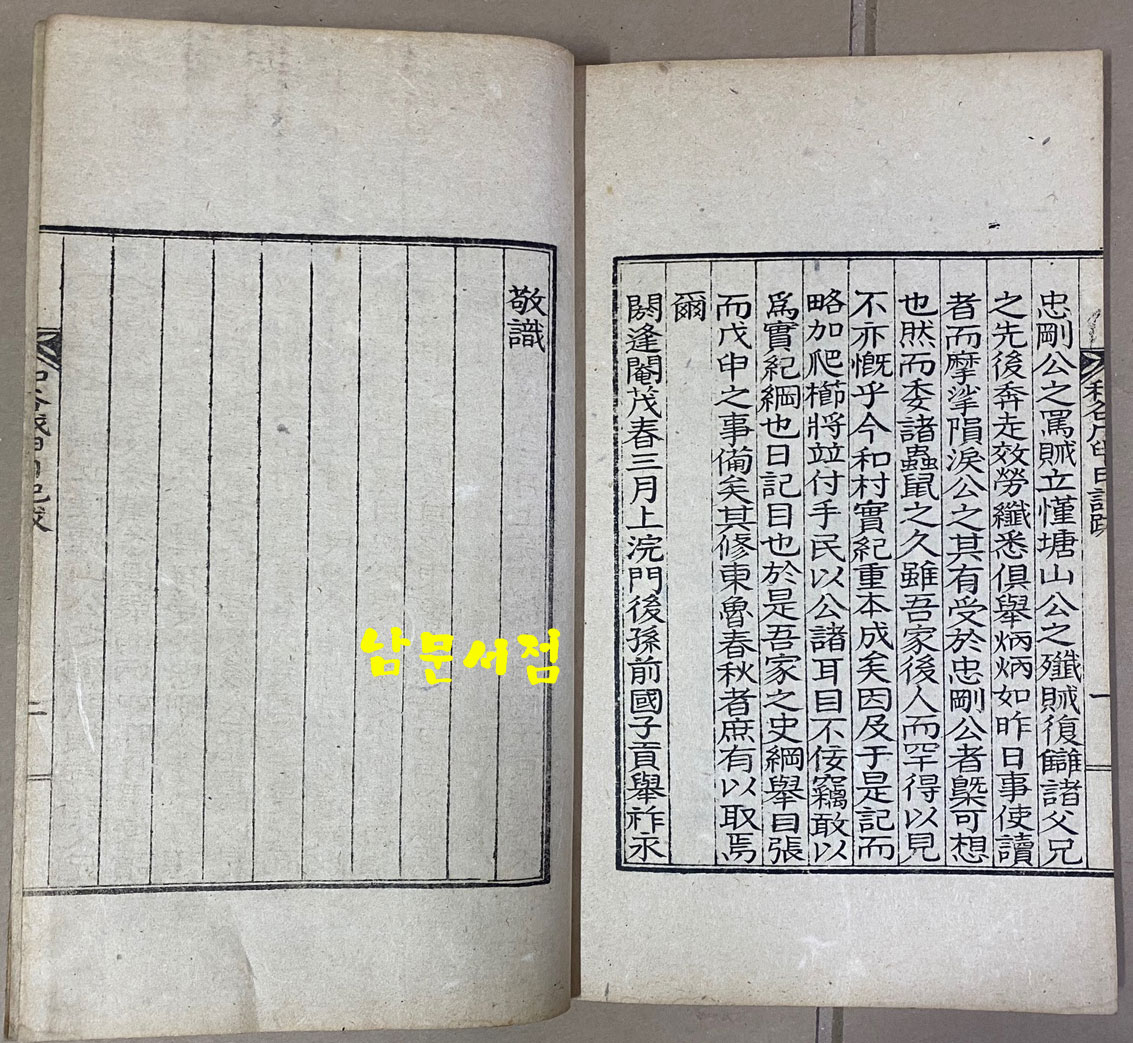 忠剛公之罵賊立慬塘山公之殲賊復讎諸父兄
之先後奔走效勞纖悉俱舉炳炳如昨日事使讀
者而摩挲隕淚公之其有受於忠剛公者槩可想
也然而委諸蟲鼠之久雖吾家後人而罕得以見
不亦慨乎今和村實紀重本成矣因及于是記而
略加爬櫛將竝付手民以公諸耳目不佞竊敢以
爲實紀綱也日記目也於是吾家之史綱舉目張
而戊申之事備矣其修東魯春秋者庶有以取焉
爾
閼逢閹茂春三月上浣門後孫前國子貢舉祚永
敬識
二
一
남문서점